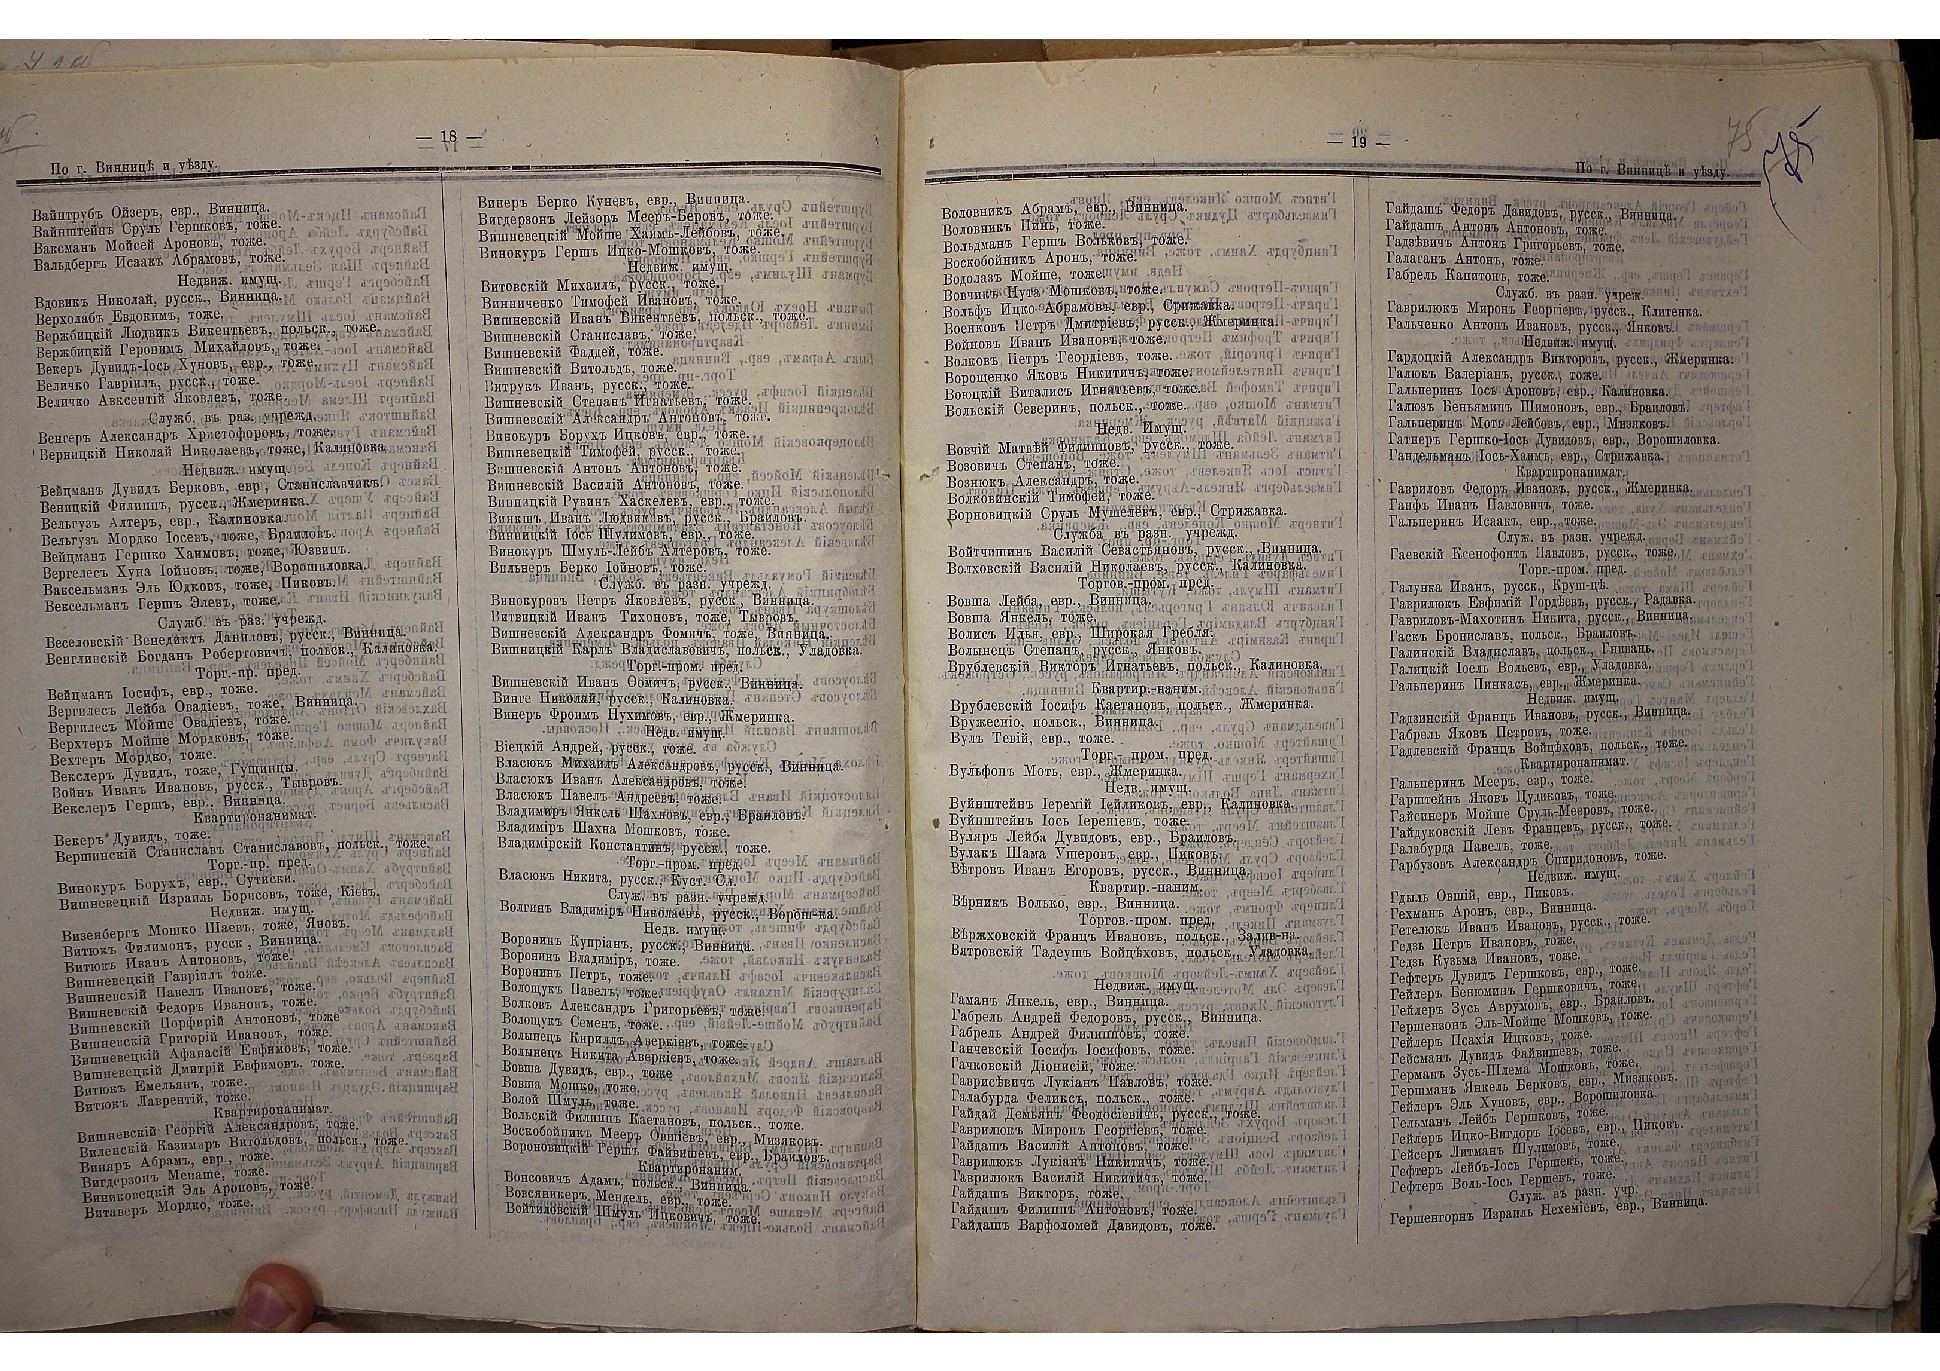 — 18 —
По г. Винницѣ и уѣзду.
Вайнтрубъ Ойзеръ, евр., Винница.
Вайнштейнъ Сруль Гершковъ, тоже.
Ваксманъ Мойсей Ароновъ, тоже.
Вальдбергъ Исаакъ Абрамовъ, тоже.
Недвиж. имущ.
Вдовикъ Николай, русск., Винница.
Верхолабъ Евдокимъ, тоже.
Вержбицкій Людвикъ Викентьевъ, польск., тоже.
Вержбицкій Геронимъ Михайловъ, тоже.
Векеръ Дувидъ-Іось Хуновъ, евр., тоже.
Величко Гавріилъ, русск., тоже.
Величко Авксентій Яковлевъ, тоже.
Служб. въ раз. учрежд.
Венгеръ Александръ Христофоровъ, тоже.
Верницкій Николай Николаевъ, тоже, Калиновка.
Недвиж. имущ.
Вейцманъ Дувидъ Берковъ, евр., Станиславчикъ.
Веницкій Филиппъ, русск., Жмеринка.
Вельгузъ Алтеръ, евр., Калиновка.
Вельгузъ Мордко Іосевъ, тоже, Браиловъ.
Вейцманъ Гершко Хаимовъ, тоже, Юзвинъ.
Вергелесъ Хуна Іойновъ, тоже, Ворошиловка.
Ваксельманъ Эль Юдковъ, тоже, Пиковъ.
Вексельманъ Гершъ Элевъ, тоже.
Служб. въ раз. учрежд.
Веселовскій Венедиктъ Даниловъ, русск., Винница.
Венглинскій Богданъ Робертовичъ, польск., Калиновка.
Торг.-пр. пред.
Вейцманъ Іосифъ, евр., тоже.
Вергилесъ Лейба Овадіевъ, тоже, Винница.
Вергилесъ Мойше Овадіевъ, тоже.
Верхтеръ Мойше Мордковъ, тоже.
Вехтеръ Мордко, тоже.
Векслеръ Дувидъ, тоже, Гущинцы.
Войнъ Иванъ Ивановъ, русск., Тывровъ.
Векслеръ Гершъ, евр., Винница.
Квартиронанимат.
Векеръ Дувидъ, тоже.
Вершинскій Станиславъ Станиславовъ, польск., тоже.
Торг.-пр. пред.
Винокуръ Борухъ, евр., Сутиски.
Вишневецкій Израиль Борисовъ, тоже, Кіевъ.
Недвиж. имущ.
Визенбергъ Мошко Шаевъ, тоже, Яновъ.
Витюкъ Филимонъ, русск., Винница.
Витюкъ Иванъ Антоновъ, тоже.
Вишневецкій Гавріилъ тоже.
Вишневскій Павелъ Ивановъ, тоже.
Вишневскій Федоръ Ивановъ, тоже.
Вишневскій Порфирій Антоновъ, тоже
Вишневскій Григорій Ивановъ, тоже.
Вишневецкій Афанасій Евфимовъ, тоже.
Вишневецкій Дмитрій Евфимовъ, тоже.
Витюкъ Емельянъ, тоже.
Витюкъ Лаврентій, тоже.
Квартиронанимат.
Вишневскій Георгій Александровъ, тоже.
Виленскій Казимиръ Витольдовъ, польск., тоже.
Виняръ Абрамъ, евр., тоже.
Вигдерзонъ Менаше, тоже.
Виниковецкій Эль Ароновъ, тоже.
Витаверъ Мордко, тоже.
Винеръ Берко Куневъ, евр., Винница.
Вигдерзонъ Лейзоръ Мееръ-Беровъ, тоже.
Вишневецкій Мойше Хаимъ-Лейбовъ, тоже.
Винокуръ Гершъ Ицко-Мошковъ, тоже.
Недвиж. имущ.
Витовскій Михаилъ, русск., тоже.
Винниченко Тимофей Ивановъ, тоже.
Вишневскій Иванъ Викентьевъ, польск., тоже.
Вишневскій Станиславъ, тоже.
Вишневскій Фаддей, тоже.
Вишневскій Витольдъ, тоже.
Витрукъ Иванъ, русск., тоже.
Вишневскій Степанъ Игнатьевъ, тоже.
Вишневскій Александръ Антоновъ, тоже.
Винокуръ Борухъ Ицковъ, евр., тоже.
Вишневецкій Тимофей, русск., тоже.
Вишневскій Антонъ Антоновъ, тоже.
Вишневскій Василій Антоновъ, тоже.
Винницкій Рувинъ Хаскелевъ, евр., тоже.
Винкшъ Иванъ Людвиковъ, русск., Браиловъ.
Винницкій Іось Шулимовъ, евр., тоже.
Винокуръ Шмуль-Лейбъ Алтеровъ, тоже.
Вильнеръ Берко Іойновъ, тоже.
Служб. въ разн. учрежд.
Винокуровъ Петръ Яковлевъ, русск., Винница.
Витвицкій Иванъ Тихоновъ, тоже, Тывровъ.
Вишневскій Александръ Фомичъ, тоже, Винница.
Вишницкій Карлъ Владиславовичъ, польск., Уладовка.
Торг.-пром. пред.
Вишневскій Иванъ Фомичъ, русск., Винница.
Винге Николай, русск., Калиновка.
Винеръ Фроимъ Нухимовъ, евр., Жмеринка.
Недв. имущ.
Віецкій Андрей, русск., тоже.
Власюкъ Михаилъ Александровъ, русск., Винница.
Власюкъ Иванъ Александровъ, тоже.
Власюкъ Павелъ Андреевъ, тоже.
Владимиръ Янкель Шахновъ, евр., Браиловъ.
Владиміръ Шахна Мошковъ, тоже.
Владимірскій Константинъ, русск., тоже.
Торг.-пром. пред.
Власюкъ Никита, русск., Куст. Сл.
Служ. въ разн. учрежд.
Волгинъ Владиміръ Николаевъ, русск., Ворош-ка.
Недв. имущ.
Воронинъ Купріанъ, русск., Винница.
Воронин Владиміръ, тоже.
Воронинъ Петръ, тоже.
Волощукъ Павелъ, тоже.
Волковъ Александръ Григорьевъ, тоже.
Волощукъ Семенъ, тоже.
Волынецъ Кириллъ Аверкіевъ, тоже.
Волынецъ Никита Аверкіевъ, тоже.
Вовша Дувидъ, евр., тоже
Вовша Мошко, тоже.
Волой Шмуль, тоже.
Вольскій Филиппъ Каетановъ, польск., тоже.
Воскобойникъ Мееръ Овшіевъ, евр., Мизяковъ.
Вороновицкій Гершъ Файвишевъ, евр., Браиловъ.
Квартиронаним.
Вонсовичъ Адамъ, польск., Винница.
Вовсяникеръ Мендель, евр., тоже.
Войтиловскій Шмуль Ицковичъ, тоже.
— 19 —
78
78
По г. Винницѣ и уѣзду.
Воловникъ Абрамъ, евр., Винница.
Воловникъ Пинь, тоже.
Вольдманъ Гершъ Вольковъ, тоже.
Воскобойникъ Аронъ, тоже.
Водолазъ Мойше, тоже.
Вовчикъ Нута Мошковъ, тоже.
Вольфъ Ицко Абрамовъ, евр., Стрижавка.
Военковъ Петръ Дмитріевъ, русск., Жмеринка.
Войновъ Иванъ Ивановъ, тоже.
Волковъ Петръ Георгіевъ, тоже.
Ворощенко Яковъ Никитичъ, тоже.
Воюцкій Виталисъ Игнатьевъ, тоже.
Вольскій Северинъ, польск., тоже.
Недв. Имущ.
Вовчій Матвѣй Филипповъ, русск., тоже.
Возовичъ Степанъ, тоже.
Вознюкъ Александръ, тоже.
Волковинскій Тимофей, тоже.
Ворновицкій Сруль Мушелевъ, евр., Стрижавка.
Служба въ разн. учрежд.
Войтчишинъ Василій Севастьяновъ, русск., Винница.
Волховскій Василій Николаевъ, русск., Калиновка.
Торгов.-пром. пред.
Вовша Лейба, евр., Винница,
Вовша Янкель, тоже.
Волисъ Идья, евр., Широкая Гребля.
Волынецъ Степанъ, русск., Янковъ.
Врублевскій Викторъ Игнатьевъ, польск., Калиновка.
Квартир.-наним.
Врублевскій Іосифъ Каетановъ, польск., Жмеринка.
Вружесніо, польск., Винница.
Вулъ Тевій, евр., тоже.
Торг.-пром. пред.
Вульфонъ Моть, евр., Жмеринка.
Недв. имущ.
Вуйнштейнъ Іеремій Іейликовъ, евр., Калиновка.
Вуйнштейнъ Іось Іереміевъ, тоже.
Вуляръ Лейба Дувидовъ, евр., Браиловъ.
Вулакъ Шама Ушеровъ, евр., Пиковъ.
Вѣтровъ Иванъ Егоровъ, русск., Винница.
Квартир.-наним.
Вѣрникъ Волько, евр., Винница.
Торгов.-пром. пред.
Вѣржховскій Францъ Ивановъ, польск., Залив-на.
Вятровскій Тадеушъ Войцѣховъ, польск., Уладовка.
Недвиж. имущ.
Гаманъ Янкель, евр., Винница.
Габрелъ Андрей Федоровъ, русск., Винница.
Габрелъ Андрей Филипповъ, тоже.
Ганчевскій Іосифъ Іосифовъ, тоже.
Гачковскій Діонисій, тоже.
Гаврисѣвичъ Лукіанъ Павловъ, тоже.
Галабурда Феликсъ, польск., тоже.
Гайдай Демьянъ Феодосіевичъ, русск., тоже.
Гаврилюкъ Миронъ Георгіевъ, тоже.
Гайдашъ Василій Антоновъ, тоже.
Гаврилюкъ Лукіанъ Никитичъ, тоже.
Гаврилюкъ Василій Никитичъ, тоже.
Гайдашъ Викторъ, тоже.
Гайдашъ Филиппъ Антоновъ, тоже.
Гайдашъ Варфоломей Давидовъ, тоже.
Гайдашъ Федоръ Давидовъ, русск., Винница.
Гайдашъ Антонъ Антоновъ, тоже.
Гадзѣвичъ Антонъ Григорьевъ, тоже.
Галаганъ Антонъ, тоже.
Габрелъ Капитонъ, тоже.
Служб. въ разн. учреж.
Гаврилюкъ Миронъ Георгіевъ, русск., Клитенка.
Гальченко Антонъ Ивановъ, русск., Янковъ.
Недвиж. имущ.
Гардоцкій Александръ Викторовъ, русск., Жмеринка.
Галюкъ Валеріанъ, русск., тоже.
Гальперинъ Іось Ароновъ, евр., Калиновка.
Галюзъ Беньяминъ Шимоновъ, евр., Браиловъ.
Гальперинъ Моть Лейбовъ, евр., Мизяковъ.
Гатнеръ Гершко-Іось Дувидовъ, евр., Ворошиловка.
Гандельманъ Іось-Хаимъ, евр., Стрижавка.
Квартиронанимат.
Гавриловъ Федоръ Ивановъ, русск., Жмеринка.
Ганфъ Иванъ Павловичъ, тоже.
Гальперинъ Исаакъ, евр., тоже.
Служ. въ разн. учрежд.
Гаевскій Ксенофонтъ Павловъ, русск., тоже.
Торг.-пром. пред.
Галунка Иванъ, русск., Круш-цѣ.
Гаврилюкъ Евфимій Гордѣевъ, русск., Радавка.
Гавриловъ-Махотинъ Никита, русск., Винница.
Гаскъ Брониславъ, польск., Браиловъ.
Галинскій Владиславъ, польск., Гнивань.
Галицкій Іоель Вольевъ, евр., Уладовка.
Гальперинъ Пинкасъ, евр., Жмеринка.
Недвиж. имущ.
Гадзинскій Францъ Ивановъ, русск., Винница.
Габрель Яковъ Петровъ, тоже.
Гадлевскій Францъ Войцѣховъ, польск., тоже.
Квартиронанимат.
Гальперинъ Мееръ, евр., тоже.
Гарштейнъ Яковъ Цудиковъ, тоже.
Гайсинеръ Мойше Сруль-Мееровъ, тоже.
Гайдуковскій Левъ Францевъ, русск., тоже.
Галабурда Павелъ, тоже.
Гарбузовъ Александръ Спиридоновъ, тоже.
Недвиж. имущ.
Гдыль Овшій, евр., Пиковъ.
Гехманъ Аронъ, евр., Винница.
Гетелюкъ Иванъ Ивановъ, русск., тоже.
Гедзь Петръ Ивановъ, тоже.
Гедзь Кузьма Ивановъ, тоже.
Гефтеръ Дувидъ Гершковъ, евр., тоже.
Гейлеръ Бенюминъ Гершковичъ, тоже.
Гейлеръ Зусь Аврумовъ, евр., Браиловъ,
Гершензонъ Эль-Мойше Мошковъ, тоже.
Гейлеръ Псахія Ицковъ, тоже.
Гейсманъ Дувидъ Файвишевъ, тоже.
Германъ Зусь-Шлема Мошковъ, тоже,
Гершманъ Янкель Берковъ, евр., Мизяковъ.
Гейлеръ Эль Хуновъ, евр., Ворошиловка.
Гельманъ Лейбъ Гершковъ, тоже.
Гейлеръ Ицко-Вигдоръ Іосевъ, евр., Пиковъ.
Гейсеръ Литманъ Шулимовъ, тоже.
Гефтеръ Лейбъ-Іось Гершевъ, тоже.
Гефтеръ Воль-Іось Гершевъ, тоже.
Служ. въ разн. учр.
Гершенгорнъ Израиль Нехеміевъ, евр., Винница.